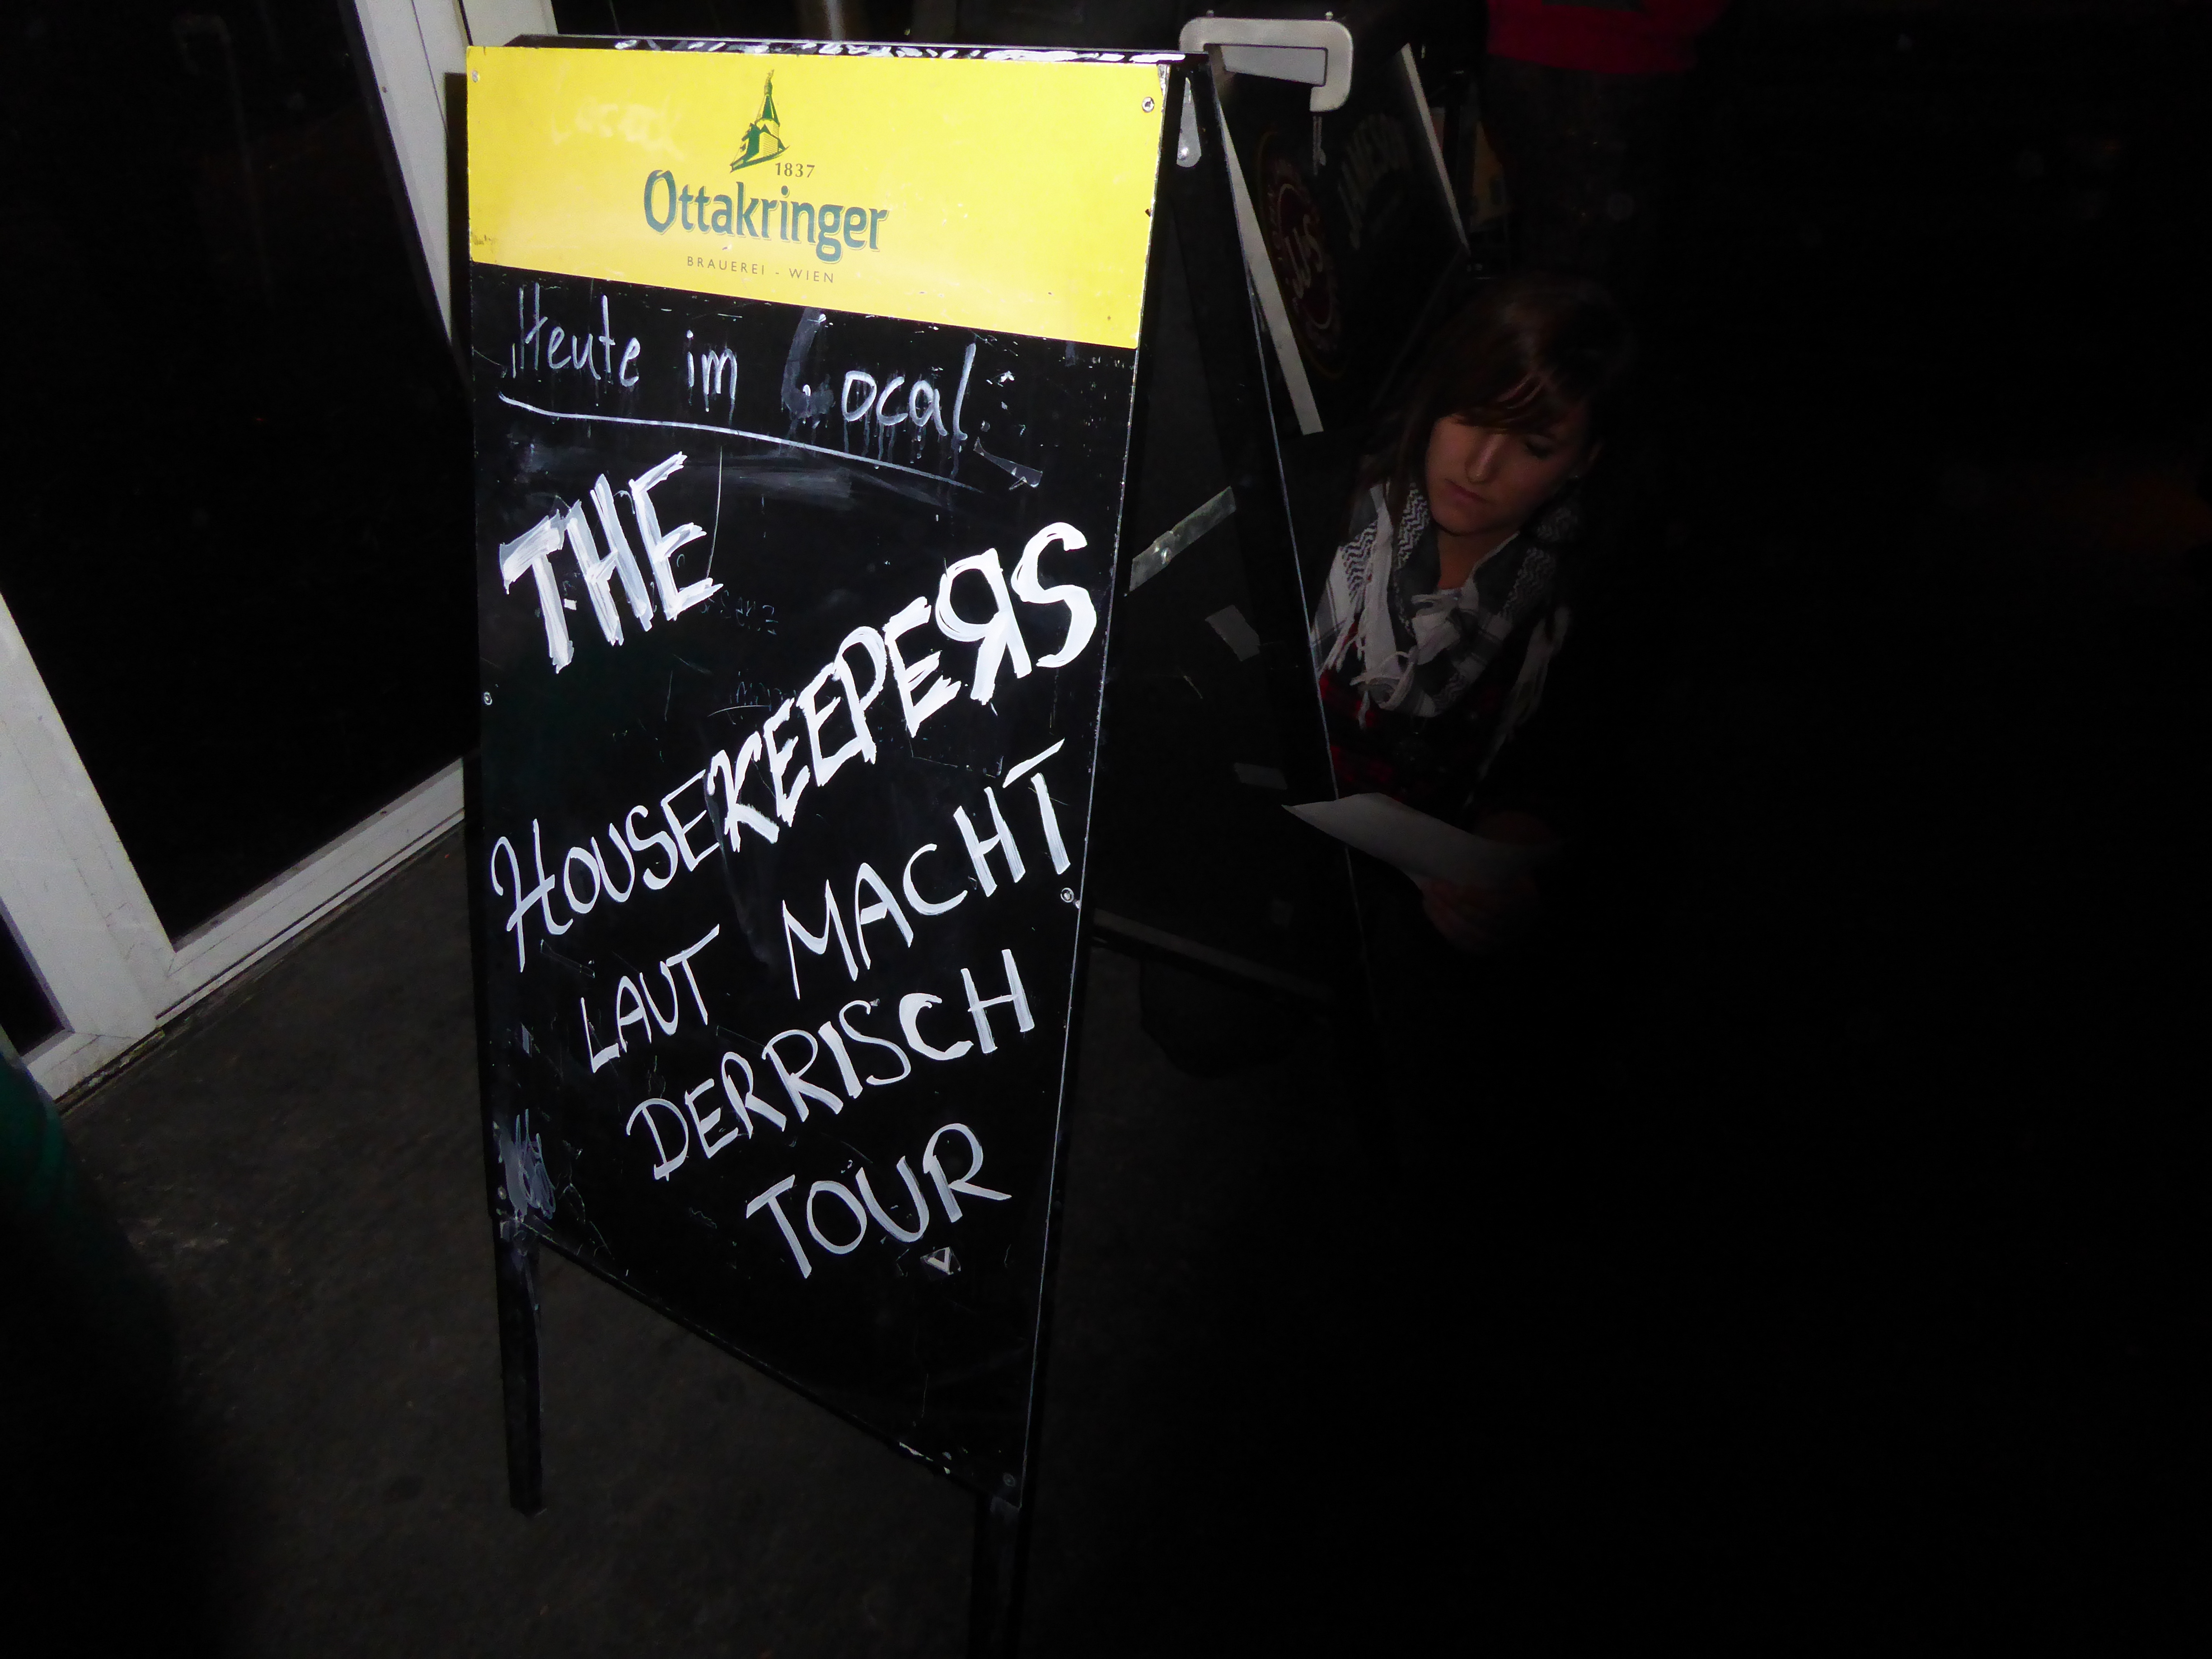 1837
Ottakringer
BRAUEREI - WIEN
Heute im Local:
THE
HOUSEKEEPERS
LAUT MACHT
DERRISCH
TOUR
JAMESON